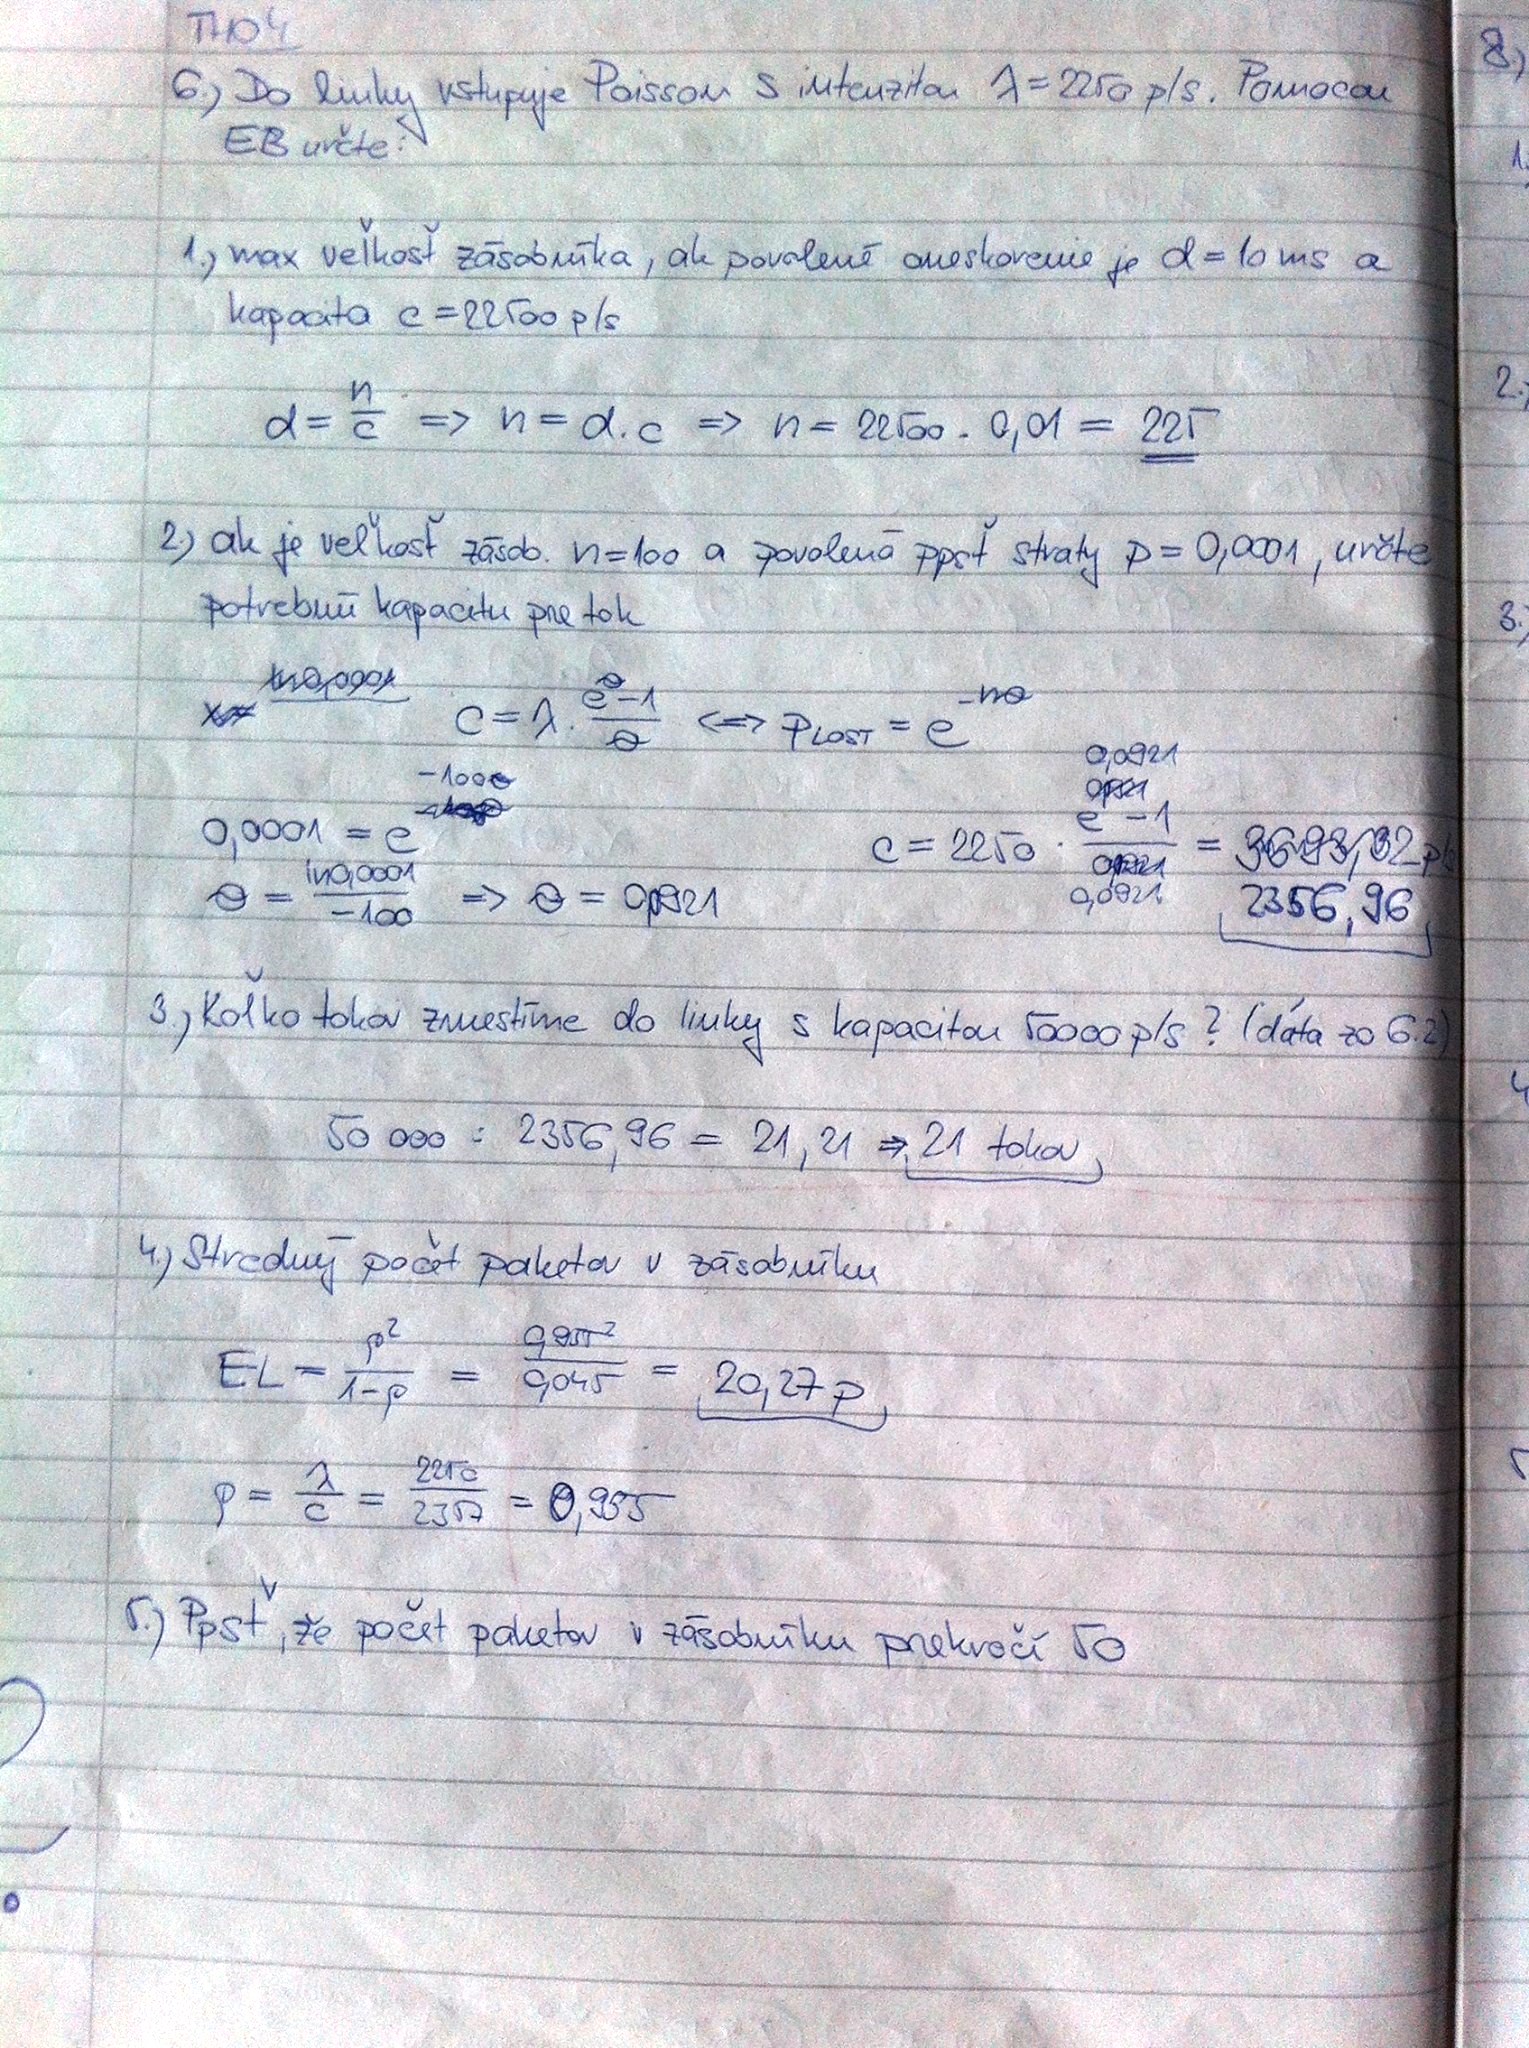 TH04
6.) Do linky vstupuje Poisson s intenzitou λ = 2250 p/s. Pomocou
EB určte:
1.) max veľkosť zásobníka, ak povolené oneskorenie je d = 10 ms a
kapacita c = 22500 p/s
d = n/c => n = d.c => n = 22500 . 0,01 = 225
2.) ak je veľkosť zásob. n=100 a povolená ppsť straty p = 0,0001, určte
potrebnú kapacitu pre tok
c = λ . (e^θ - 1)/θ <=> P_LOST = e^(-nθ)
0,0001 = e^(-100θ)
θ = ln0,0001/-100 => θ = 0,0921
c = 2250 . (e^0,0921 - 1)/0,0921 = 3693,32 p/s
2356,96
3.) Koľko tokov zmestíme do linky s kapacitou 50000 p/s? (dáta zo 6.2)
50 000 : 2356,96 = 21,21 => 21 tokov
4.) Stredný počet paketov v zásobníku
EL = ρ²/(1-ρ) = 0,955²/0,045 = 20,27 p
ρ = λ/c = 2250/2357 = 0,955
5.) Ppsť, že počet paketov v zásobníku prekročí 50
?
8.)
1.
2.)
3.)
4
5